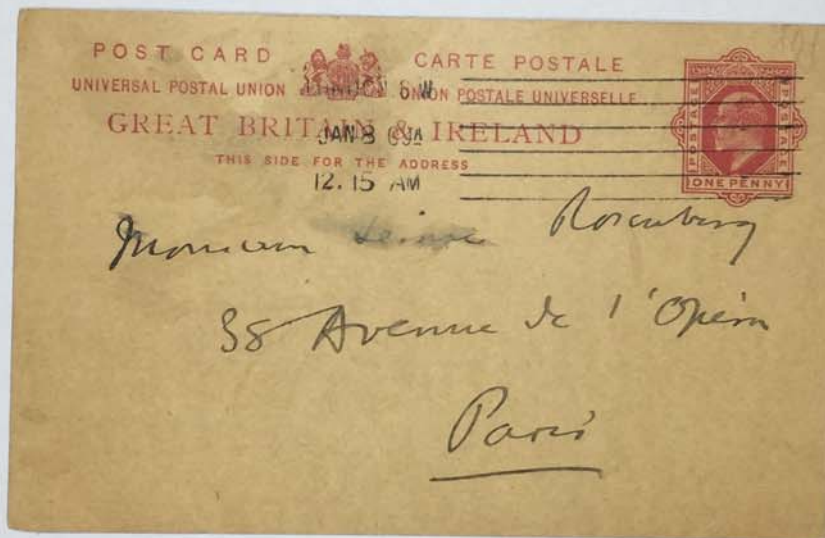 POST CARD CARTE POSTALE
UNIVERSAL POSTAL UNION UNION POSTALE UNIVERSELLE
GREAT BRITAIN & IRELAND
THIS SIDE FOR THE ADDRESS
LONDON S.W
JAN 8 09
12.15 AM
POSTAGE POSTAGE
ONE PENNY
Monsieur Rosenberg
38 Avenue de l'Opéra
Paris